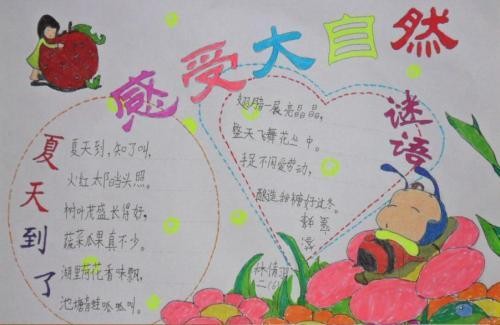 感受大自然
夏天到了
夏天到,知了叫,
火红太阳当头照。
树叶茂盛长得好,
蔬菜瓜果真不少。
湖里荷花香味飘,
池塘青蛙呱呱叫。
谜语
翅膀一展亮晶晶,
整天飞舞花丛中。
手足不闲爱劳动,
酿造甜糖好过冬。
林倩
二(6)